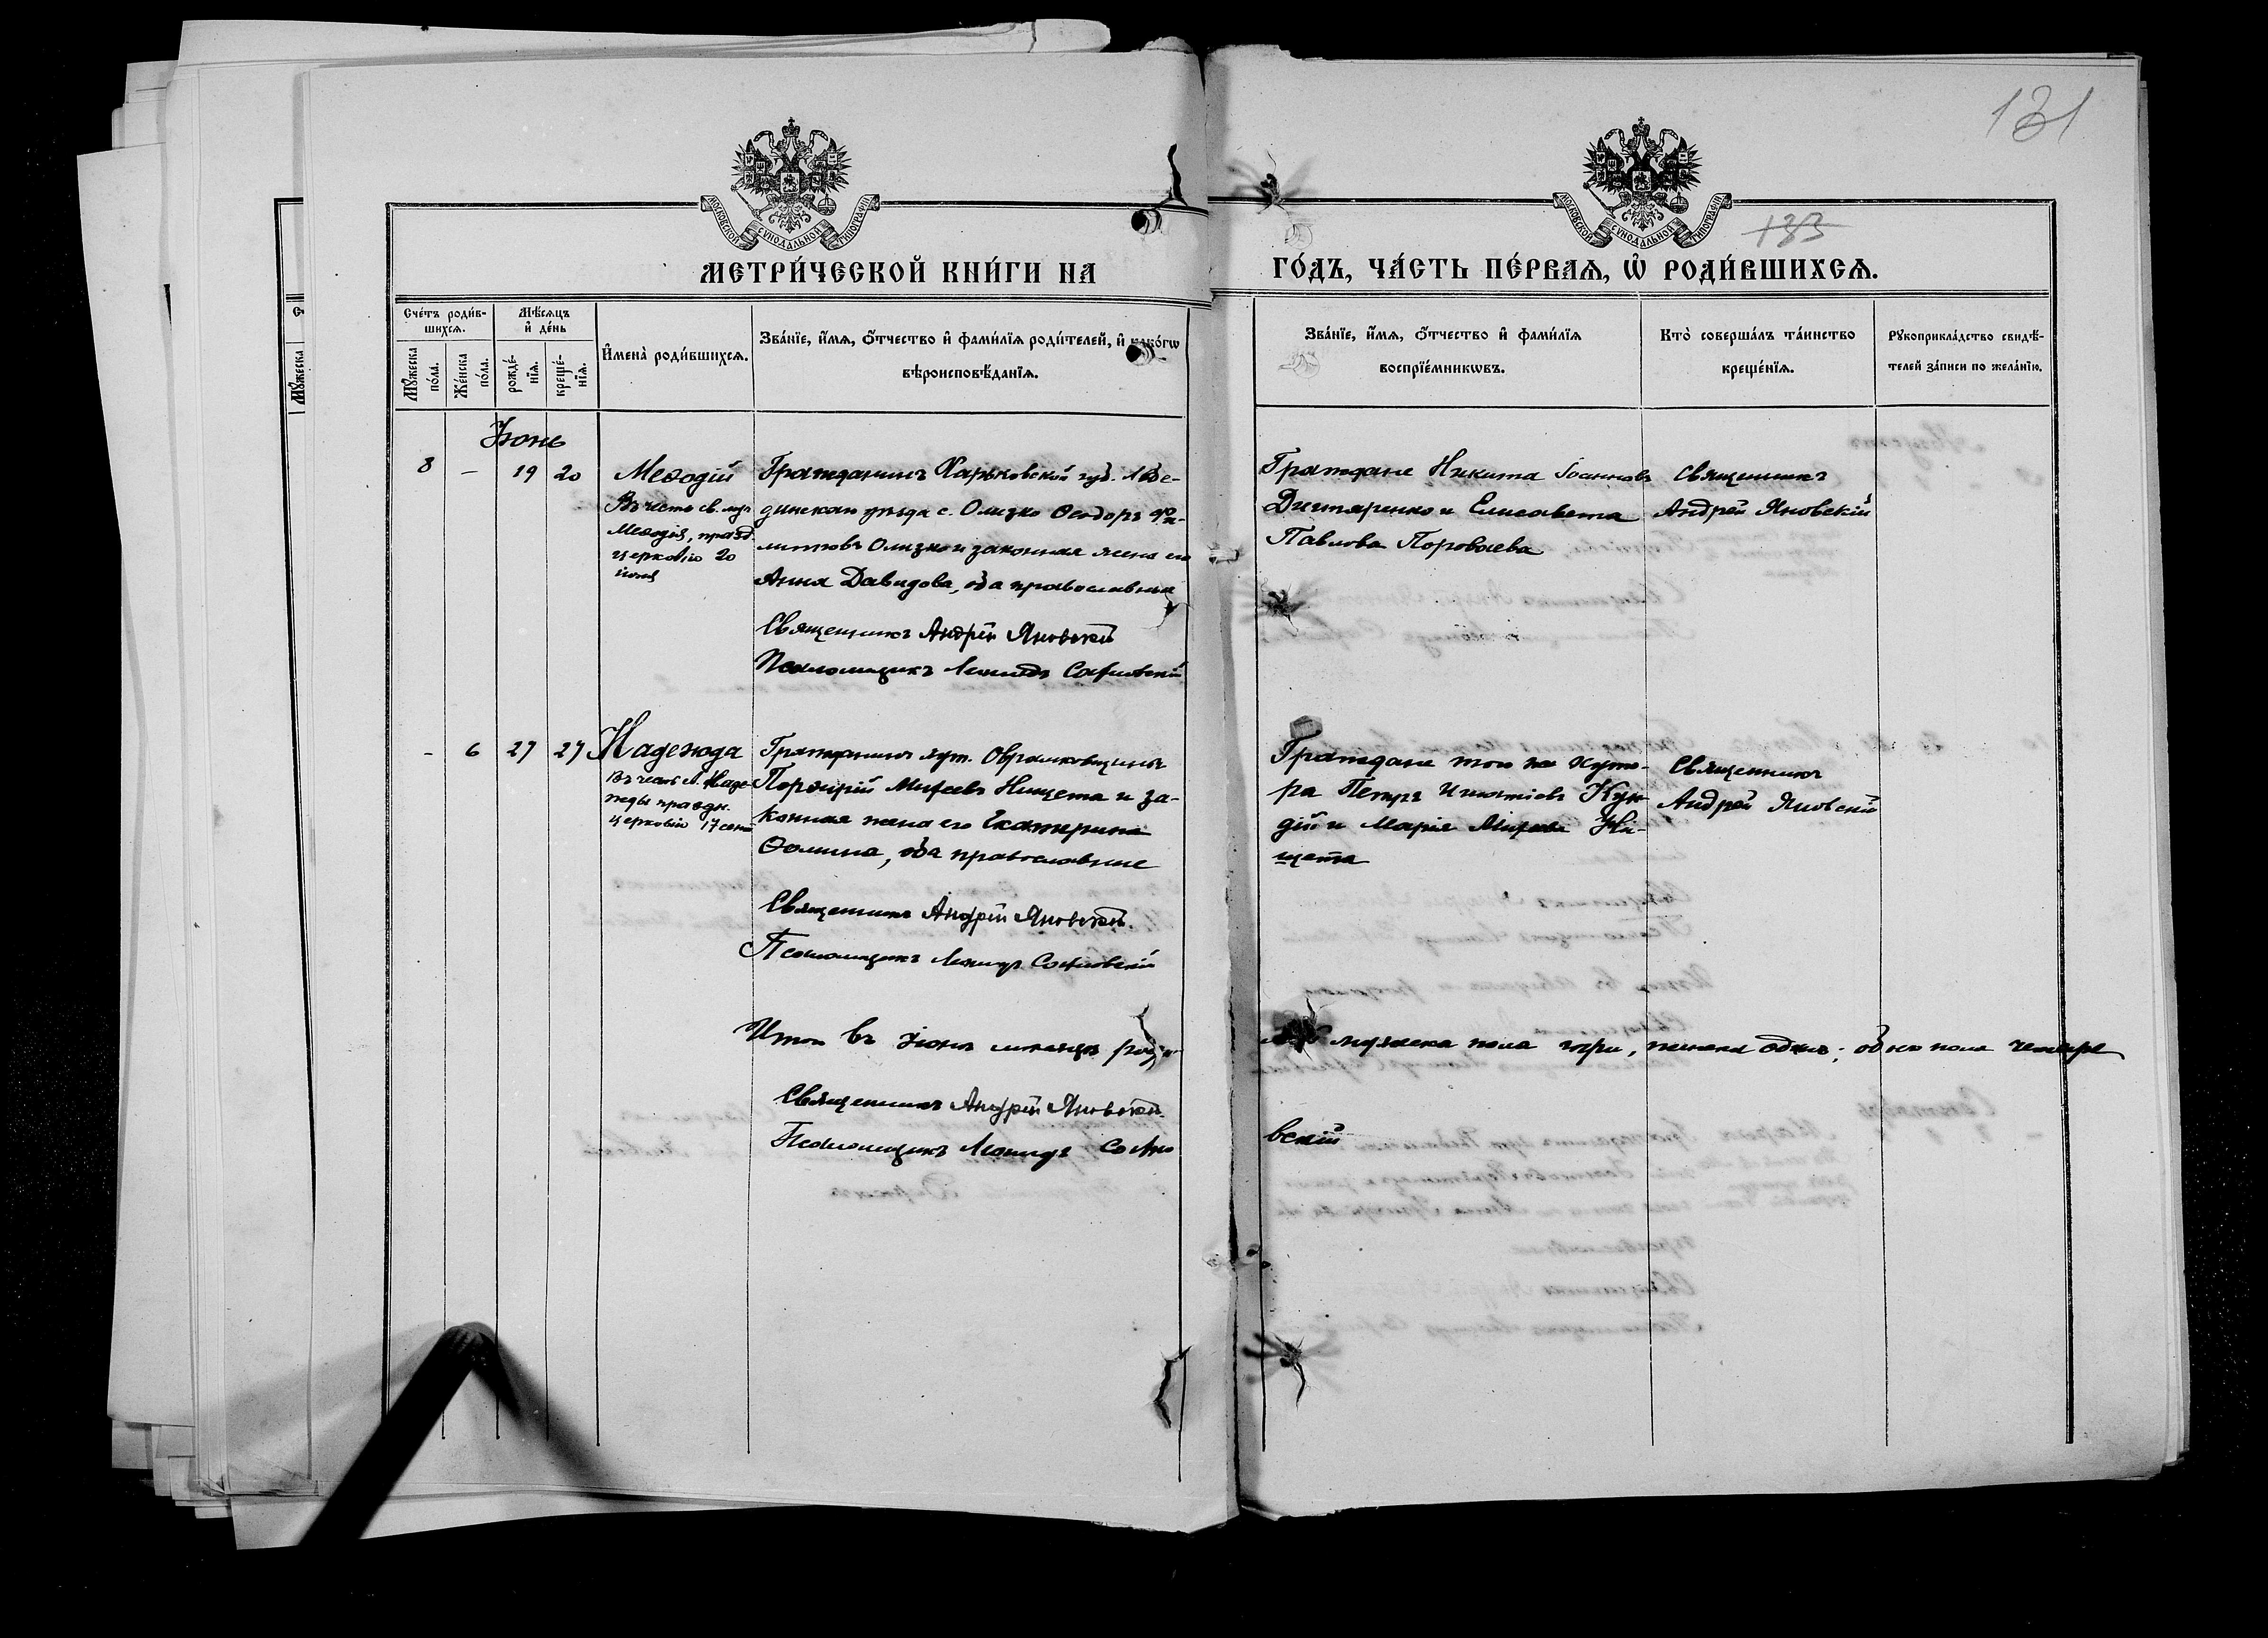 131
МОСКОВСКОЙ СѴНОДАЛЬНОЙ ТИПОГРАФІИ
МОСКОВСКОЙ СѴНОДАЛЬНОЙ ТИПОГРАФІИ
183
МЕТРИ́ЧЕСКОЙ КНИ́ГИ НА
ГО́ДЪ, ЧА́СТЬ ПЕ́РВАѦ, Ѡ РОДИ́ВШИХСѦ.
Счетъ родив-
шихсѧ.
Мꙋжеска
пола.
Женска
пола.
Мѣсѧцъ
и день
рожде-
нїѧ.
креще-
нїѧ.
Имена родившихсѧ.
Званїе, имѧ, отчество и фамилїѧ родителей, и какогѡ
вѣроисповѣданїѧ.
Званїе, имѧ, отчество и фамилїѧ
воспрїемникѡвъ.
Кто совершалъ таинство
крещенїѧ.
Рꙋкоприкладство свидѣ-
телей записи по желанїю.
Іюнь
8 – 19 20
Меѳодій
Въ честь св. муч.
Меѳодія, празд.
церковію 20
іюня
Гражданинъ Харьковской губ. Лебе-
динскаго уѣзда с. Олизко Ѳеодоръ Фи-
липповъ Олизко и законная жена его
Анна Давидова, оба православные
Священникъ Андрей Яновскій
Псаломщикъ Леонидъ Софіевскій
Граждане Никита Іоанновъ
Дегтяренко и Елисавета
Павлова Пороваева
Священникъ
Андрей Яновскій
– 6 27 27
Надежда
Въ честь м. Наде-
жды праздн.
церковію 17 сент
Гражданинъ хут. Овраменковщины
Порфирій Михеевъ Нищета и за-
конная жена его Екатерина
Ѳомина, оба православные
Священникъ Андрей Яновскій
Псаломщикъ Леонидъ Софіевскій
Граждане того же хуто-
ра Петръ Игнатіевъ
и Марія Михеева Ни-
щета
Священникъ
Андрей Яновскій
Итого въ іюнѣ мѣсяцѣ
мужеска пола три, женска одна; обоего пола четыре
Священникъ Андрей Яновскій
Псаломщикъ Леонидъ Софіе
вскій